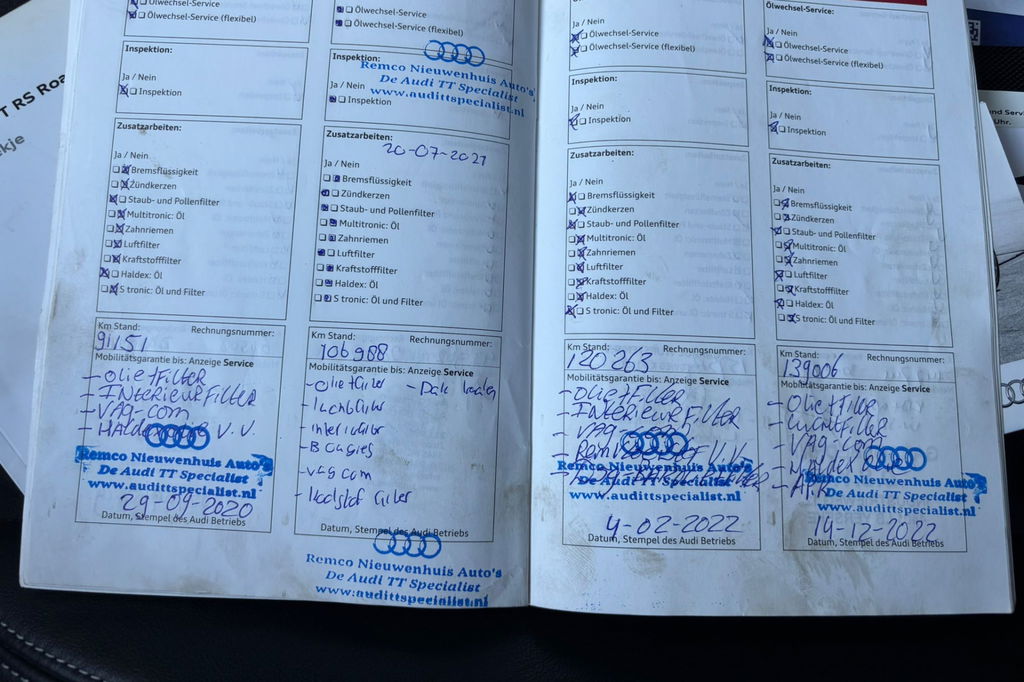 T RS Roa
ekje
Ölwechsel-Service
Ölwechsel-Service (flexibel)
Inspektion:
Ja / Nein
Inspektion
Zusatzarbeiten:
Ja / Nein
Bremsflüssigkeit
Zündkerzen
Staub- und Pollenfilter
Multitronic: Öl
Zahnriemen
Luftfilter
Kraftstofffilter
Haldex: Öl
S tronic: Öl und Filter
Km Stand: Rechnungsnummer:
91151
Mobilitätsgarantie bis: Anzeige Service
- OLIEFFILTER
- INTERIEURFILTER
- VAG-COM
- HALDEX V.V.
Remco Nieuwenhuis Auto's
De Audi TT Specialist
www.audittspecialist.nl
29-09-2020
Datum, Stempel des Audi Betriebs
Ölwechsel-Service
Ölwechsel-Service (flexibel)
Inspektion:
Remco Nieuwenhuis Auto's
De Audi TT Specialist
www.audittspecialist.nl
Ja / Nein
Inspektion
Zusatzarbeiten:
20-07-2021
Ja / Nein
Bremsflüssigkeit
Zündkerzen
Staub- und Pollenfilter
Multitronic: Öl
Zahnriemen
Luftfilter
Kraftstofffilter
Haldex: Öl
S tronic: Öl und Filter
Km Stand: Rechnungsnummer:
106988
Mobilitätsgarantie bis: Anzeige Service
- oliefilter
- luchtfilter
- interieur
- Bougies
- vag com
Datum, Stempel des Audi Betriebs
Remco Nieuwenhuis Auto's
De Audi TT Specialist
www.audittspecialist.nl
Ja / Nein
Ölwechsel-Service
Ölwechsel-Service (flexibel)
Inspektion:
Ja / Nein
Inspektion
Zusatzarbeiten:
Ja / Nein
Bremsflüssigkeit
Zündkerzen
Staub- und Pollenfilter
Multitronic: Öl
Zahnriemen
Luftfilter
Kraftstofffilter
Haldex: Öl
S tronic: Öl und Filter
Km Stand: Rechnungsnummer:
120263
Mobilitätsgarantie bis: Anzeige Service
- OLIEFFILTER
- INTERIEURFILTER
- VAG-COM
V.V.
Remco Nieuwenhuis Auto's
De Audi TT Specialist
www.audittspecialist.nl
4-02-2022
Datum, Stempel des Audi Betriebs
Ölwechsel-Service:
Ja / Nein
Ölwechsel-Service
Ölwechsel-Service (flexibel)
Inspektion:
Ja / Nein
Inspektion
Zusatzarbeiten:
Ja / Nein
Bremsflüssigkeit
Zündkerzen
Staub- und Pollenfilter
Multitronic: Öl
Zahnriemen
Luftfilter
Kraftstofffilter
Haldex: Öl
S tronic: Öl und Filter
Km Stand: Rechnungsnummer:
139006
Mobilitätsgarantie bis: Anzeige Service
- OLIEFFILTER
- LUCHTFILTER
- VAG-COM
- HALDEX
- APK
Remco Nieuwenhuis Auto's
De Audi TT Specialist
www.audittspecialist.nl
14-12-2022
Datum, Stempel des Audi Betriebs
nd Serv
Uhr.